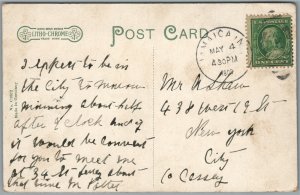 LITHO-CHROME
POST CARD
JAMAICA, N.
MAY 4
4 30 PM
I expect to be in
the City to morrow
morning about
after o clock and if
it would be convent
for you to meet me
at 34 St ferry about
that time M
Mr
438 West 19 St
New York
City